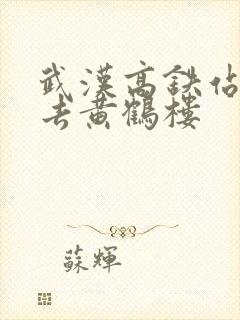 武漢高鉄佔
去黃鶴樓
蘇輝